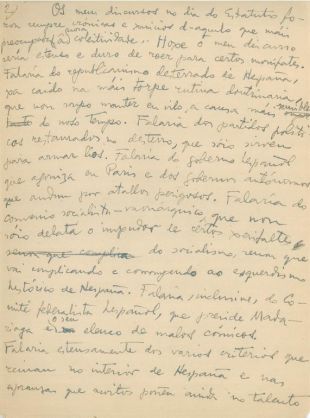 2/ Os meus discursos no dia do Estatuto fo-
ron sempre crónicas e xuicios d-aquelo que mais
preocupara á coleitividade. Hoxe o meu discurso
sería extenso e duro de roer para certos manifestes.
Falaría do republicanismo desterrado de Hespaña,
xa caído na mais torpe rutina doutrinaria
que non supo manter eu vilo, a causa mais sensibel
de noso tempo. Falaría dos partidos politi-
cos restaurados no desterro, que sóio serven
para armar líos. Falaría do goberno español
que agoniza en París e dos gobernos autónomos
que andan por atallos perigosos. Falaría do
convenio socialista-monárquico, que non
sóio delata o impudor de certos xerifaltes
do socialismo, senon que
vai complicando e corrompendo ao esquerdismo
histórico de Hespaña. Falaría, inclusive, do Co-
mité federalista español, que preside Mada-
riaga e o seu elenco de malos cómicos.
Falaría extensamente dos varios criterios que
reinan no interior de Hespaña e nas
espranzas que moitos poñen ainda no talento